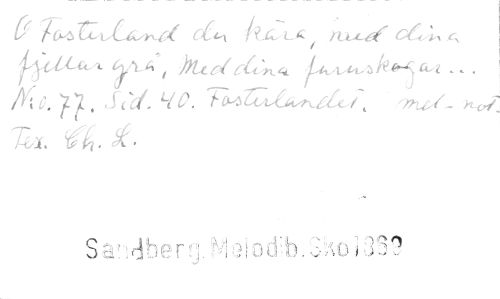 O Fosterland du kära, med dina
fjellar grå, Med dina furuskogar...
N:o. 77. Sid. 40. Fosterlandet. mel-not-
Tex. Ch. L.
Sandberg. Melodib. Sko 1869